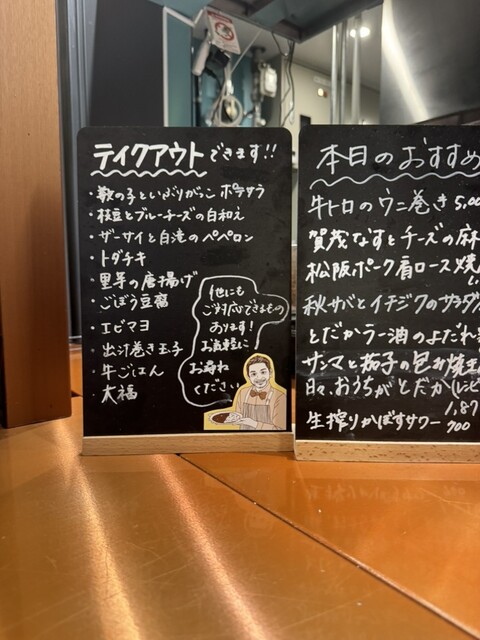 テイクアウトできます!!
・数の子といぶりがっこ ポテサラ
・枝豆とブルーチーズの白和え
・ザーサイと白滝のペペロン
・トダチキ
・里芋の唐揚げ
・ごぼう豆腐
・エビマヨ
・出汁巻き玉子
・牛ごはん
・大福
他にも
ご対応できるもの
あります!
お気軽に
お尋ね
ください
本日のおすすめ
牛トロのウニ巻き 5,00
賀茂なすとチーズの麻
松阪ポーク肩ロース焼
秋サバとイチジクのサラダ
とだかラー油のよだれ
サンマと茄子の包み焼き
日々、おうちがとだか(レシピ
1,87
生搾りかぼすサワー 700